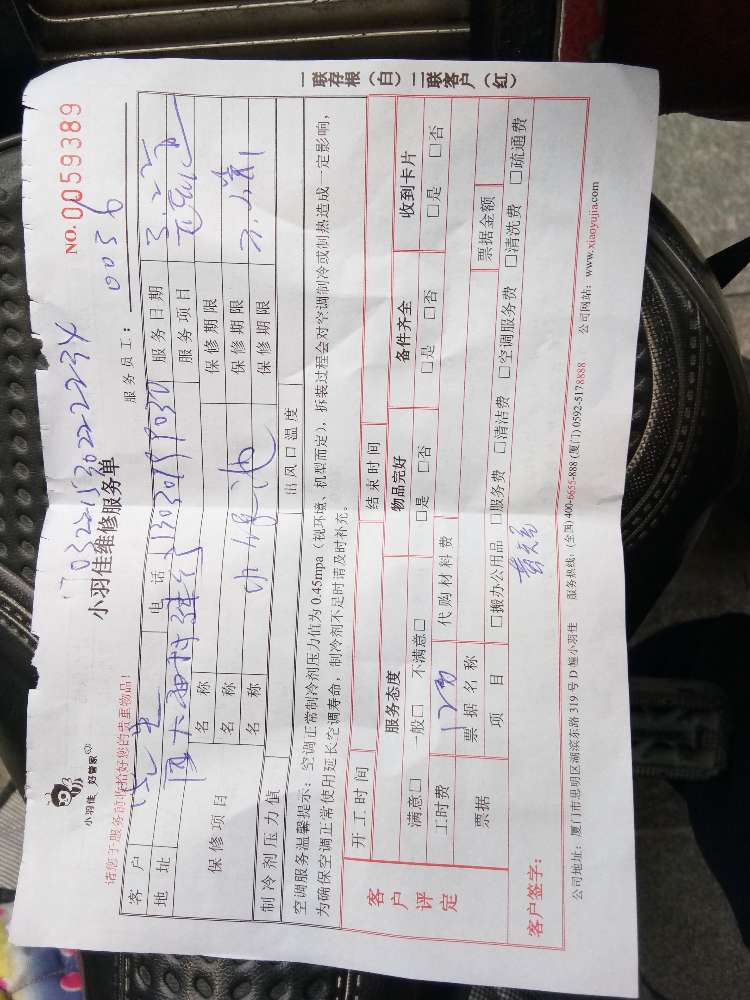 NO.0059389
032215302222234
小羽佳 好管家
小羽佳维修服务单
服务员工: 0036
请您于服务前收拾好您的贵重物品!
客户 电话 13030899030 服务日期 3.22
地址 服务项目
保修项目 名称 保修期限
名称 保修期限
名称 保修期限
制冷剂压力值 出风口温度
空调服务温馨提示:空调正常制冷剂压力值为0.45mpa(视环境、机型而定),拆装过程会对空调制冷或制热造成一定影响,
为确保空调正常使用延长空调寿命,制冷剂不足时请及时补充。
客户评定 开工时间 结束时间
服务态度 物品完好 备件齐全 收到卡片
满意□ 一般□ 不满意□ □是 □否 □是 □否 □是 □否
工时费 120 代购材料费
票据 票据名称 票据金额
项目 □搬办公用品 □服务费 □清洁费 □空调服务费 □清洗费 □疏通费
客户签字:
公司地址:厦门市思明区湖滨东路319号D幢小羽佳 服务热线:(全国)400-6655-888 (厦门)0592-5178888 公司网站:www.xiaoyujia.com
一联存根(白)二联客户(红)